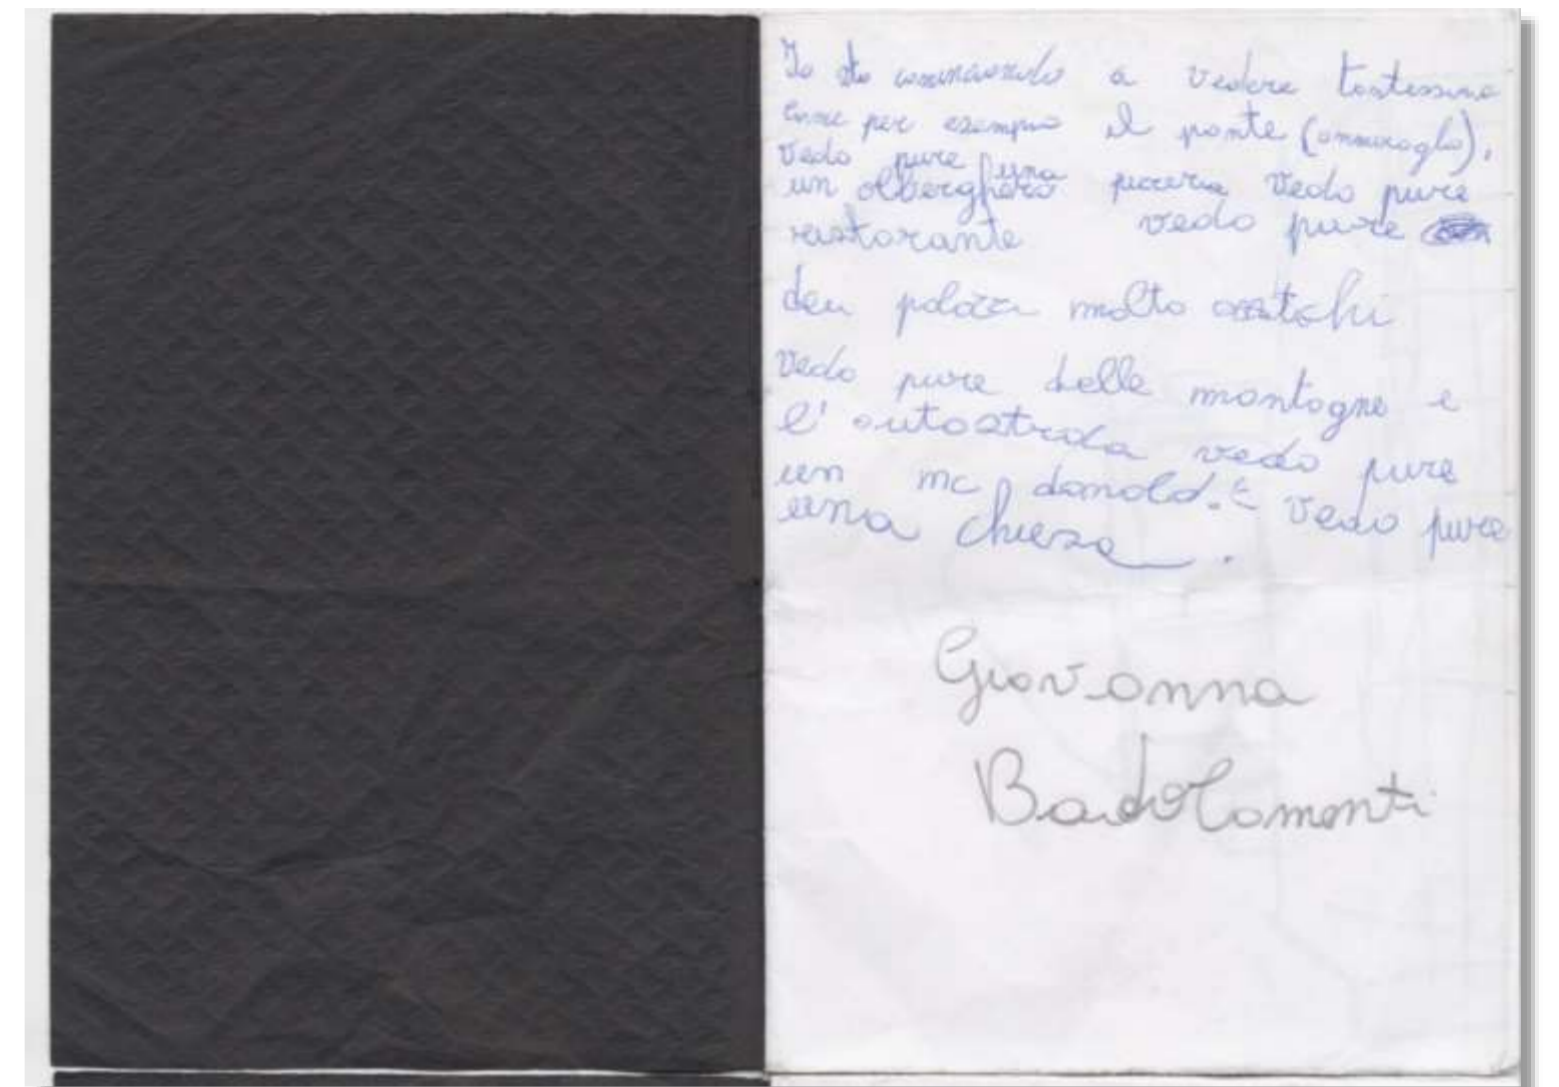 Io sto cominciando a vedere tantissime
cose per esempio il ponte (ammiraglio),
vedo pure una pizzeria vedo pure
un alberghiero
ristorante vedo pure
dei palazzi molto antichi
vedo pure delle montagne e
l'autostrada vedo pure
un mc donald. E vedo pure
una chiesa.
Giovanna
Badolamenti